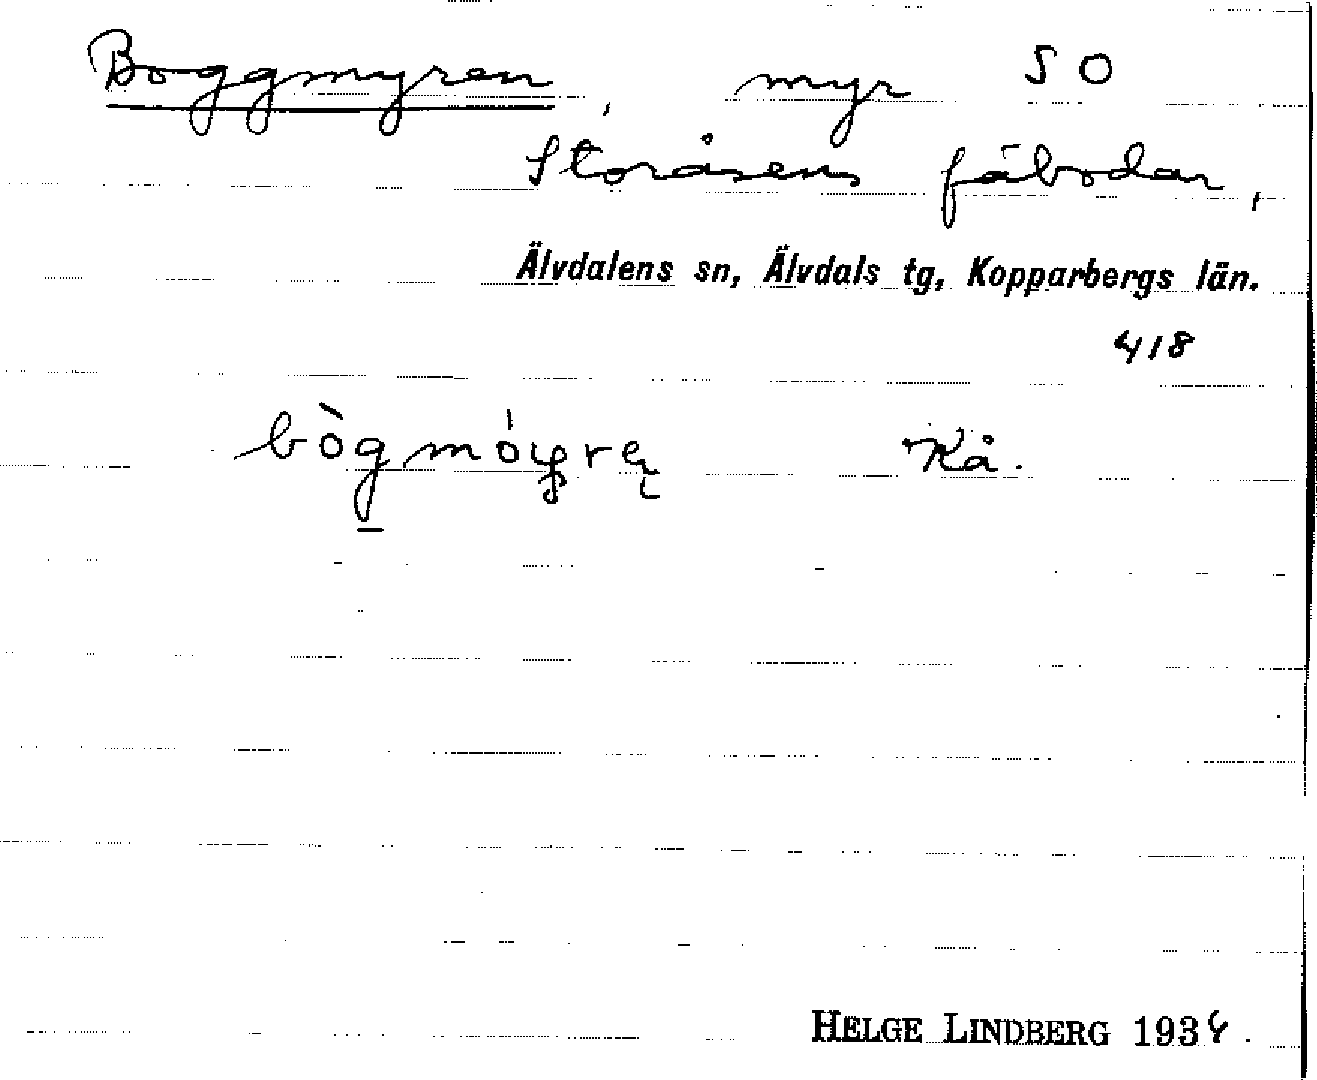 Boggmyren, myr SO
Storåsens fäbodar,
Älvdalens sn, Älvdals tg, Kopparbergs län.
418
Kå.
HELGE LINDBERG 1936.